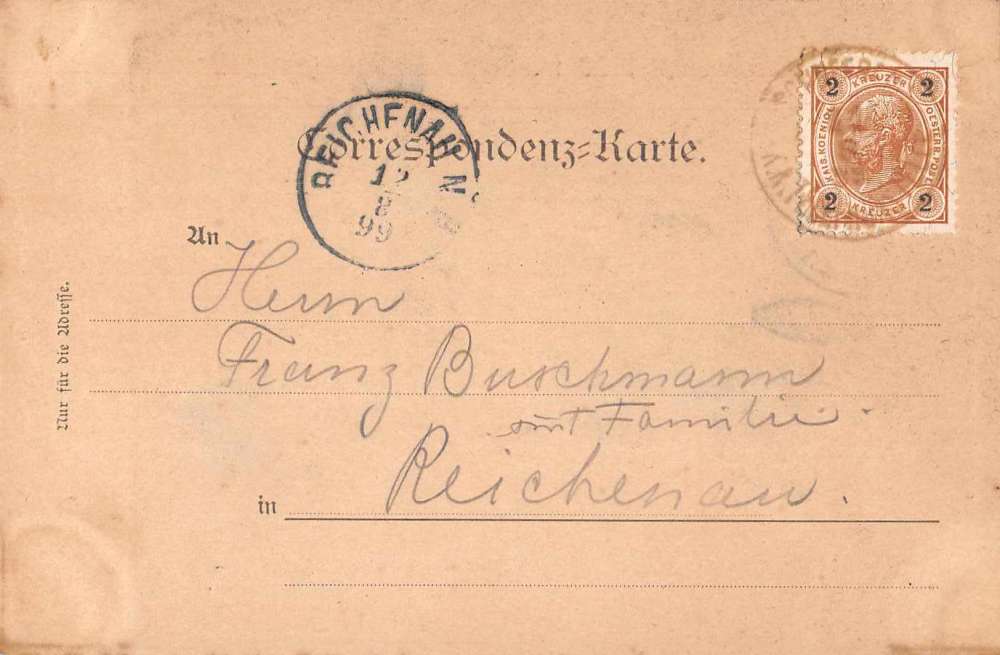 Correspondenz=Karte.
REICHENAU N.
12
8
99
2 KREUZER 2
KAIS. KOENIGL.
OESTERR. POST
2 KREUZER 2
An
Herrn
Franz Buschmann
mit Familie.
in Reichenau.
Nur für die Adresse.